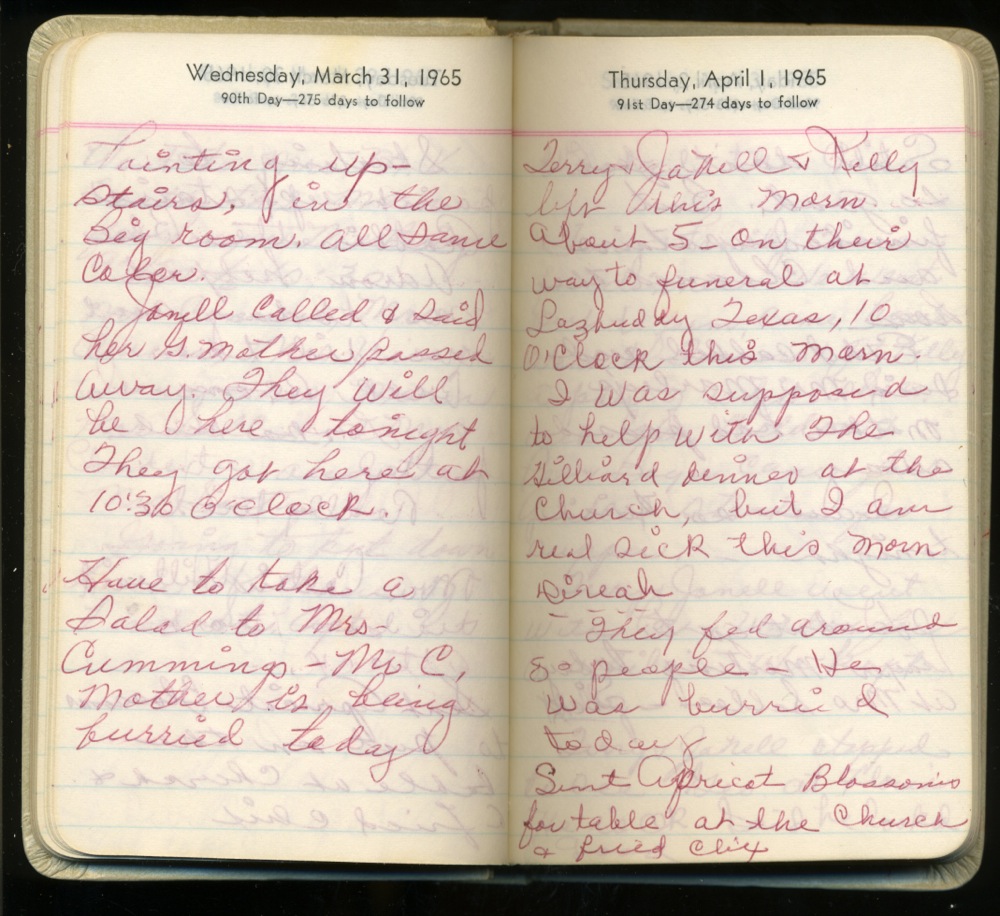 Wednesday, March 31, 1965
90th Day—275 days to follow
Painting up-
stairs, in the
Big room. all same
Coler.
Janell called & said
her G. mother passed
away. They will
be here tonight
They got here at
10:30 o clock.
Have to take a
Salad to Mrs-
Cummings - Mr C,
Mother is being
burried today
Thursday, April 1, 1965
91st Day—274 days to follow
Terry & Janell & Kelly
left this morn
about 5- on their
way to funeral at
Lazbuddy Texas, 10
O'Clock this morn.
I was supposed
to help with The
Hilliard dinner at the
Church, but I am
real sick this morn
They fed around
80 people - He
was burried
today
Sent Apricot Blossoms
for table at the Church
& fried chix